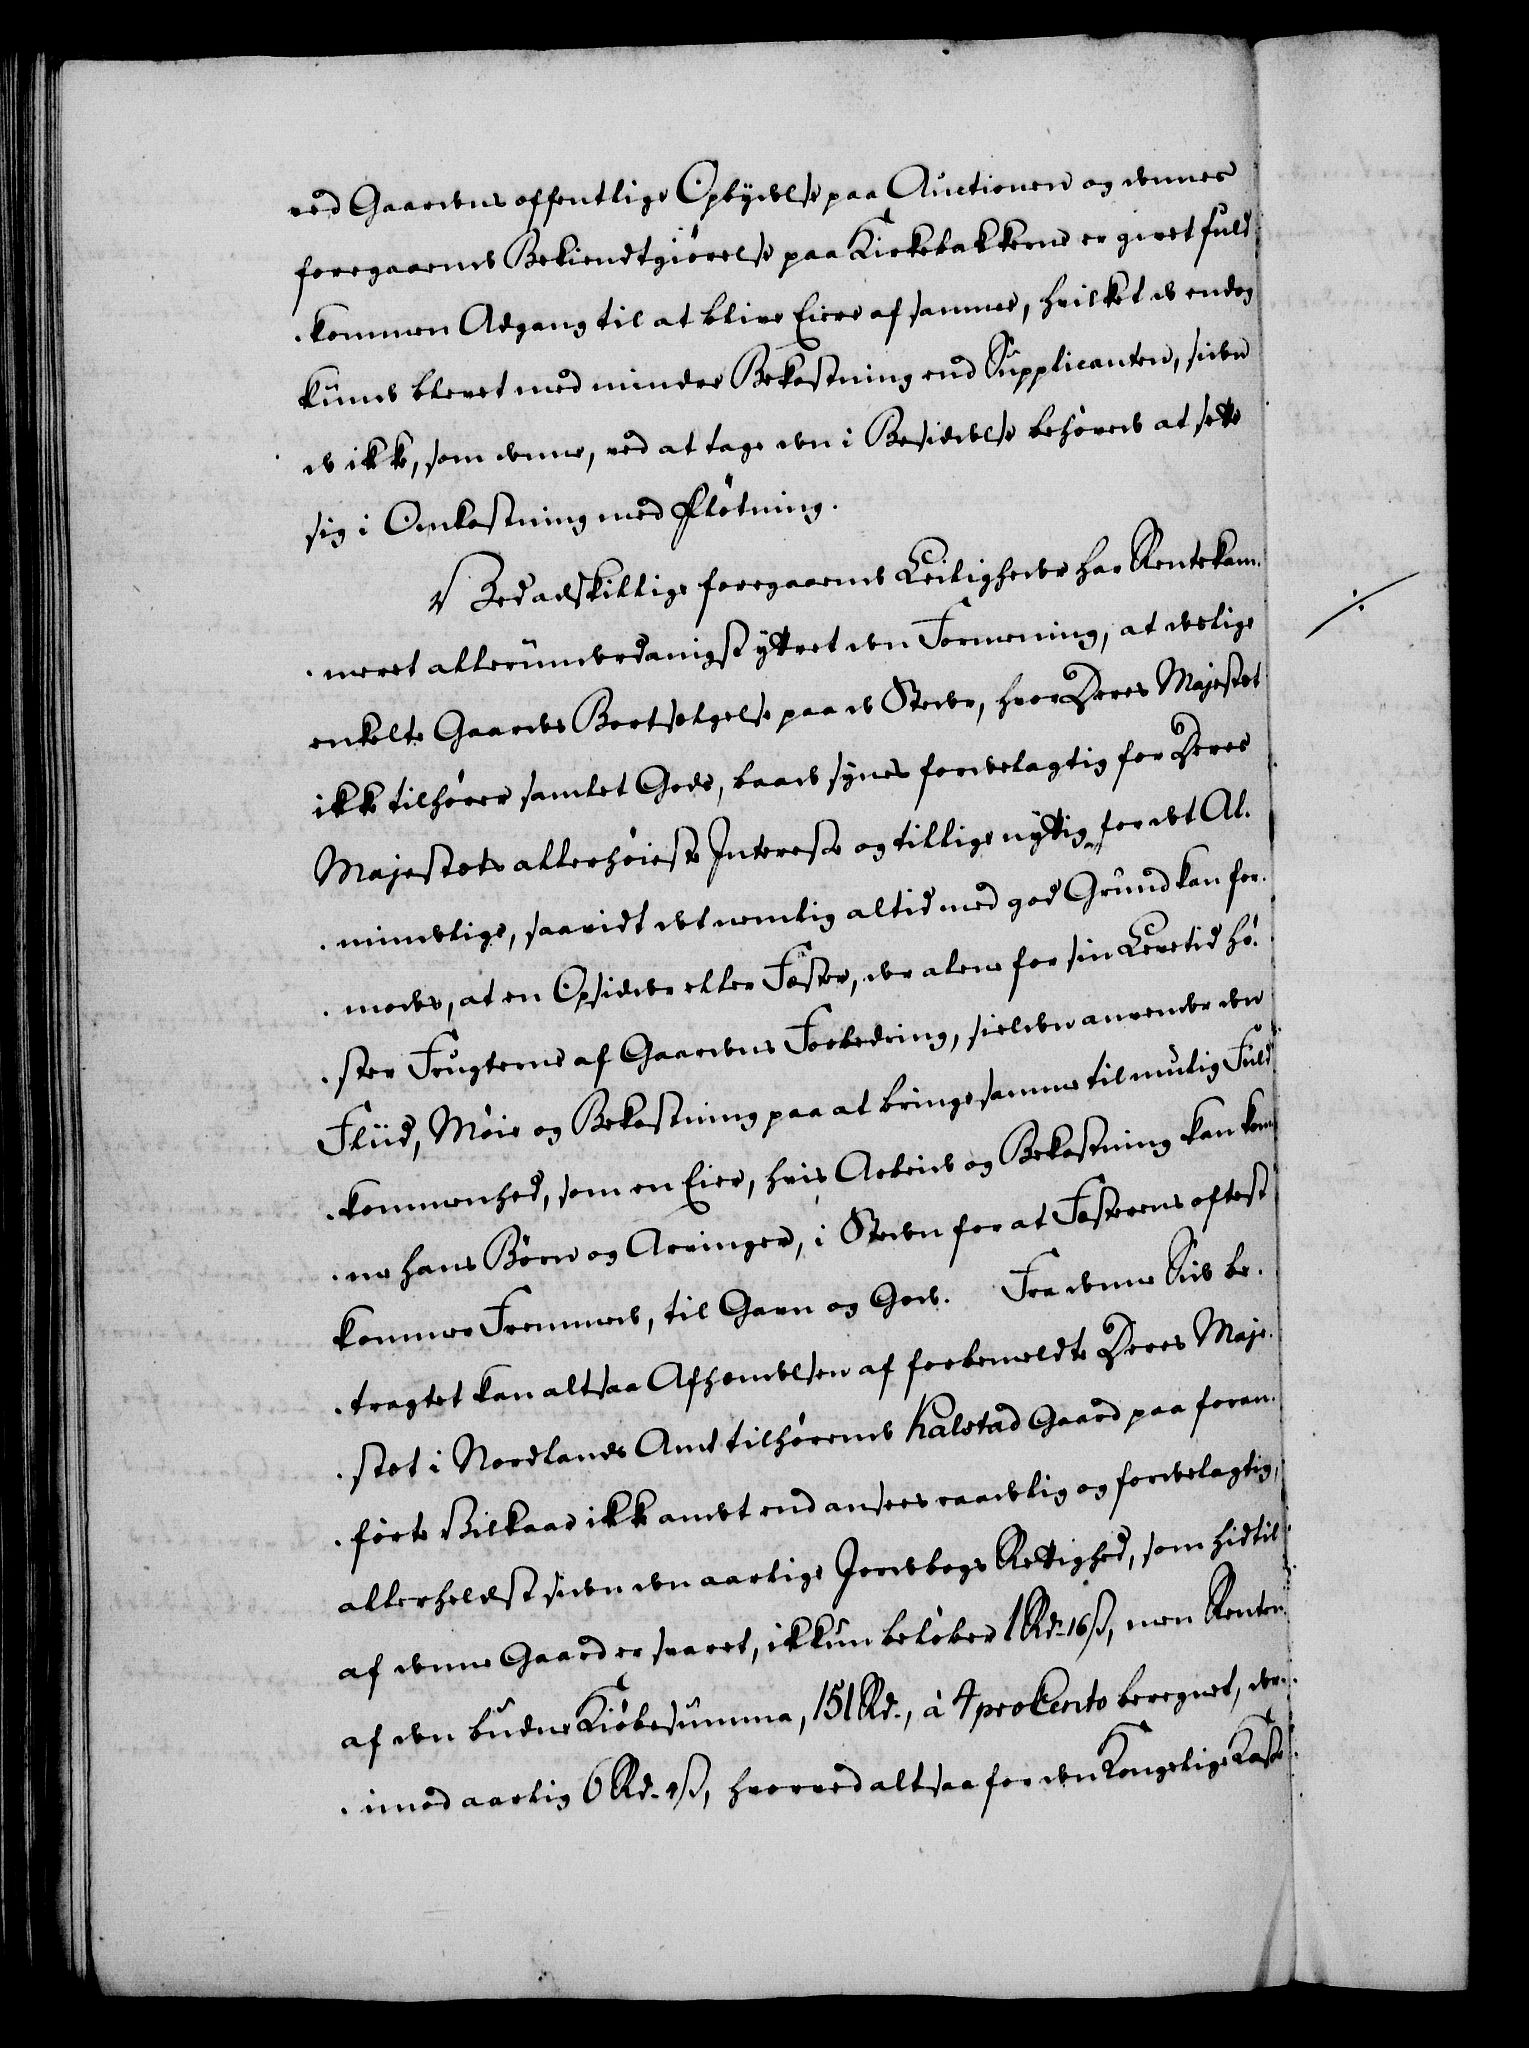 ved Gaardens offentlige Opbydelse paa Auctionen og dennes
foregaaende Bekiendtgiørelse paa Kirkebakkerne er givet fuld
kommen Adgang til at blive Eiere af samme, hvilket de endog
kunde blevet med mindre Bekostning end Supplicanten, siden
de ikke, som denne, ved at tage den i Besiddelse behøvede at sette
sig i Omkostning med Fløtning.
Ved adskillige foregaaende Leiligheder har Rentekam-
meret allerunderdanigst yttret den Formening, at deslige
enkelte Gaardes Bortsælgelse paa de Steder, hvor Deres Majestæt
ikke tilhører samlet Gods, baade synes fordelagtig for Deres
Majestæts allerhøieste Interesse og tillige nyttig for det Al-
mindelige, saavidt det nemlig altid med god Grund kan for-
modes, at en Opsidder eller Fæster, der alene for sin Levetid hø-
ster Frugterne af Gaardens Forbedring, sielden anvender den
Fliid, Møie og Bekostning paa at bringe samme til muelig Fuld
kommenhed, som en Eier, hvis Arbeide og Bekostning kan kom
me hans Børn og Arvinger, i Steden for at Fæsterens oftest
kommer Fremmede, til Gavn og Gode. Fra denne Side be-
tragtet kan altsaa Afhændelsen af forbemeldte Deres Maje-
stæt i Nordlands Amt tilhørende Kalstad Gaard paa foran-
førte Vilkaar ikke andet end ansees raadelig og fordelagtig,
allerheldst siden den aarlige Jordebogs Rettighed, som hidtil
af denne Gaard er svaret, ikkun beløber 1 Rd. 16 ß, men Renten
af den budne Kiøbesumma, 151 Rd., à 4 pro Cento beregnet, der-
imod aarlig 6 Rd. 4 ß, hvorved altsaa for den Kongelige Kasse